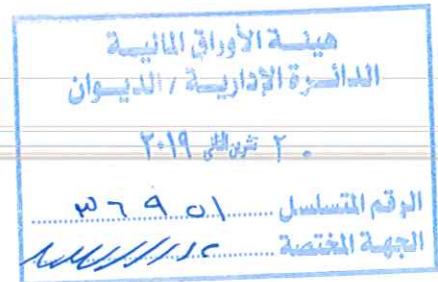 هيئة الأوراق المالية
الدائرة الإدارية / الديوان
٢٠ تشرين الثاني ٢٠١٩
الرقم المتسلسل ٣٦٩٥١
الجهة المختصة